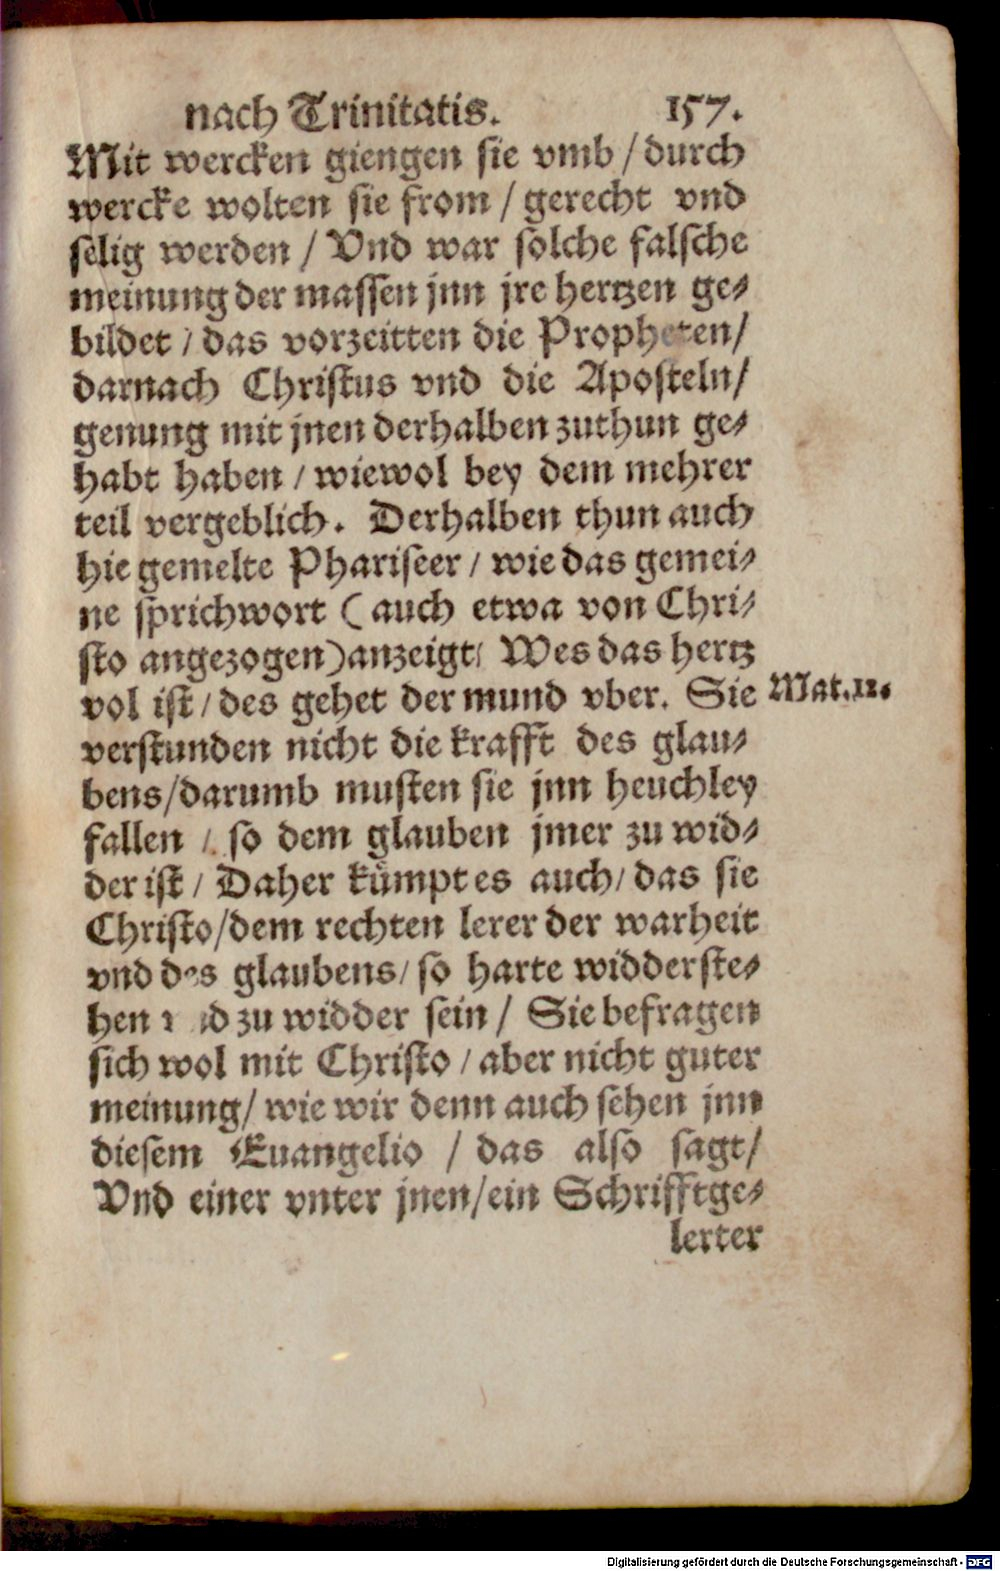 nach Trinitatis. 157.
Mit wercken giengen sie vmb / durch
wercke wolten sie from / gerecht vnd
selig werden / Vnd war solche falsche
meinung der massen jnn jre hertzen ge⸗
bildet / das vorzeitten die Propheten /
darnach Christus vnd die Aposteln /
genung mit jnen derhalben zuthun ge⸗
habt haben / wiewol bey dem mehrer
teil vergeblich. Derhalben thun auch
hie gemelte Phariseer / wie das gemei⸗
ne sprichwort (auch etwa von Chri⸗
sto angezogen) anzeigt / Wes das hertz
vol ist / des gehet der mund vber. Sie Mat.12.
verstunden nicht die krafft des glau⸗
bens / darumb musten sie jnn heuchley
fallen / so dem glauben jmer zu wid⸗
der ist / Daher kümpt es auch / das sie
Christo / dem rechten lerer der warheit
vnd des glaubens / so harte widderste⸗
hen vnd zu widder sein / Sie befragen
sich wol mit Christo / aber nicht guter
meinung / wie wir denn auch sehen jnn
diesem Euangelio / das also sagt /
Vnd einer vnter jnen / ein Schrifftge⸗
lerter
Digitalisierung gefördert durch die Deutsche Forschungsgemeinschaft - DFG